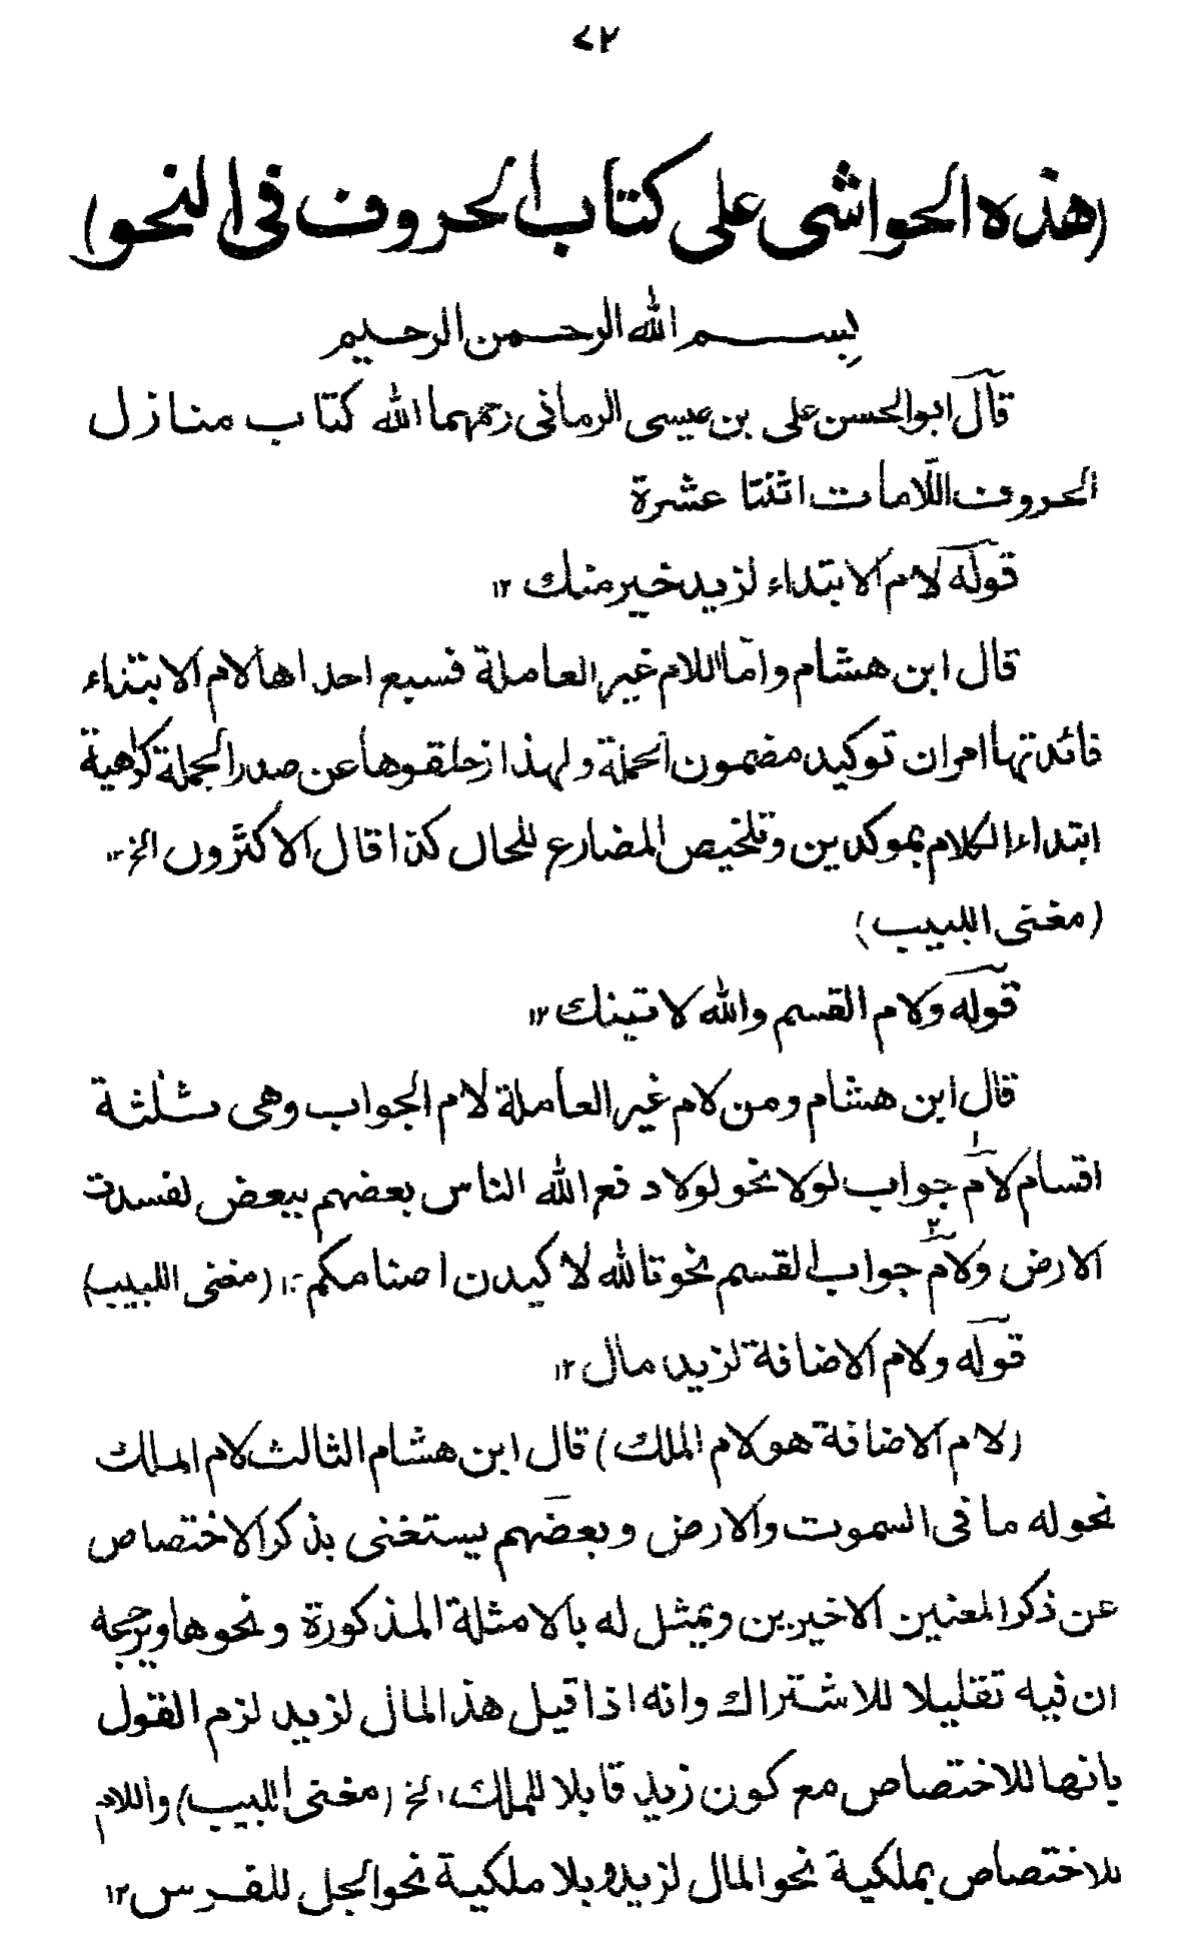 ٧٢
(هذه الحواشى على كتاب الحروف فى النحو)
بسم الله الرحمن الرحيم
قال ابوالحسن على بن عيسى الرمانى رحمهما الله كتاب منازل
الحروف اللّامات اثنتا عشرة
قوله لام الابتداء لزيد خير منك ١٢
قال ابن هشام واما اللام غير العاملة فسبع احداها لام الابتداء
فائدتها امران توكيد مضمون الجملة ولهذا زحلقوها عن صدر الجملة كراهية
ابتداء الكلام بموكدين وتلخيص المضارع للحال كذا قال الاكثرون الخ ١٢
(مغنى اللبيب)
قوله ولام القسم والله لاتينك ١٢
قال ابن هشام ومن لام غير العاملة لام الجواب وهى ثلثة
اقسام لام١ جواب لولا نحو لولا دفع الله الناس بعضهم ببعض لفسدت
الارض ولام٢ جواب القسم نحو تالله لاكيدن اصنامكم ١٢ (مغنى اللبيب)
قوله ولام الاضافة لزيد مال ١٢
(لام الاضافة هو لام الملك) قال ابن هشام الثالث لام الملك
نحو له ما فى السموت والارض وبعضهم يستغنى بذكر الاختصاص
عن ذكر المعنين الاخيرين ويمثل له بالامثلة المذكورة ونحوها ويرجحه
ان فيه تقليلا للاشتراك وانه اذا قيل هذا المال لزيد لزم القول
بانها للاختصاص مع كون زيد قابلا للملك الخ (مغنى اللبيب) واللام
للاختصاص بملكية نحو المال لزيد وبلا ملكية نحو الجل للفرس ١٢